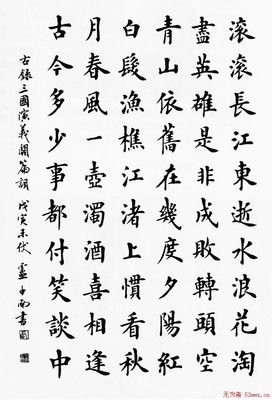 滾滾長江東逝水浪花淘
盡英雄是非成敗轉頭空
青山依舊在幾度夕陽紅
白髮漁樵江渚上慣看秋
月春風一壺濁酒喜相逢
古今多少事都付笑談中
右錄三國演義開篇詞 戊寅末伏 盧中南書